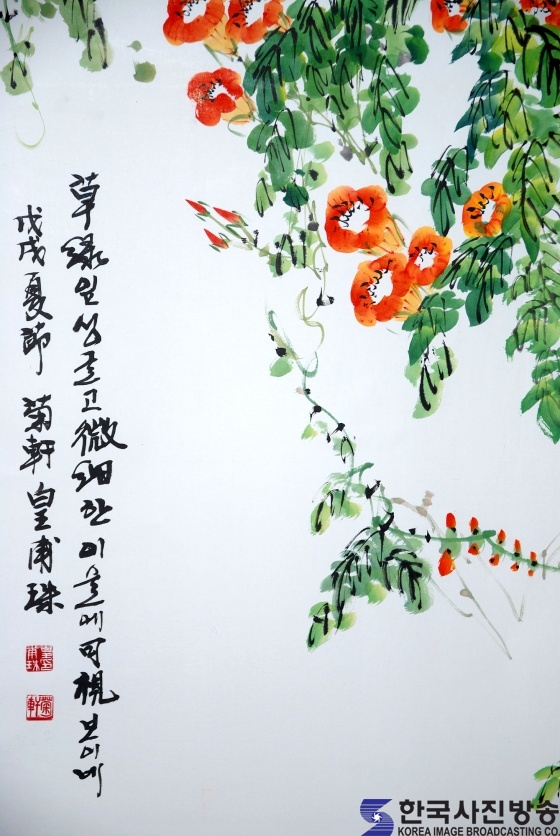 草綠잎싱글고微細한이을에可視보이네
戊戌夏節 菊軒 皇甫珠
菊軒
한국사진방송
KOREA IMAGE BROADCASTING CO